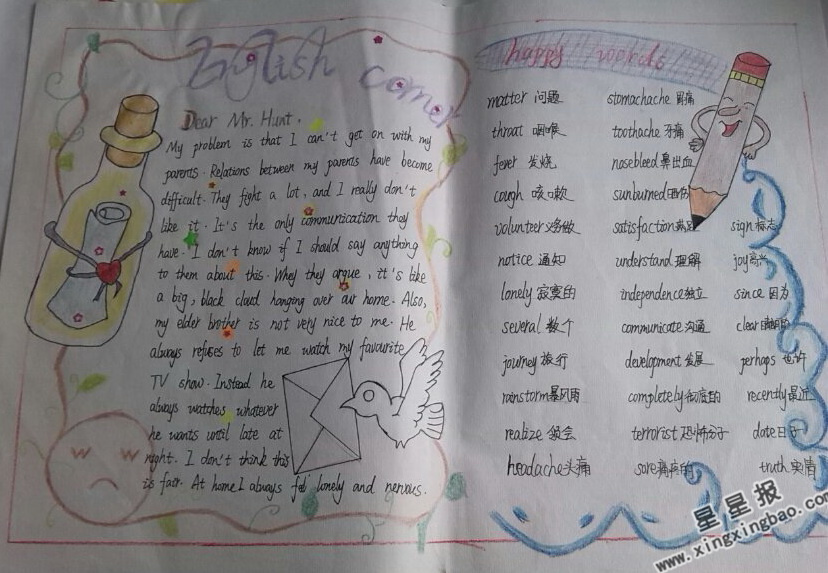 English corner
Dear Mr. Hunt,
My problem is that I can't get on with my
parents. Relations between my parents have become
difficult. They fight a lot, and I really don't
like it. It's the only communication they
have. I don't know if I should say anything
to them about this. Whey they argue, it's like
a big, black cloud hanging over our home. Also,
my elder brother is not very nice to me. He
always refuses to let me watch my favourite
TV show. Instead he
always watches whatever
he wants until late at
night. I don't think this
is fair. At home I always feel lonely and nervous.
happy words
matter 问题 stomachache 胃痛
throat 咽喉 toothache 牙痛
fever 发烧 nosebleed 鼻出血
cough 咳嗽 sunburned 晒伤
volunteer 义务做 satisfaction 满足 sign 标志
notice 通知 understand 理解 joy 高兴
lonely 寂寞的 independence 独立 since 因为
several 数个 communicate 沟通 clear 清晰的
journey 旅行 development 发展 perhaps 也许
rainstorm 暴风雨 completely 彻底的 recently 最近
realize 领会 terrorist 恐怖分子 date 日子
headache 头痛 sore 疼痛的 truth 实情
星星报
www.xingxingbao.com